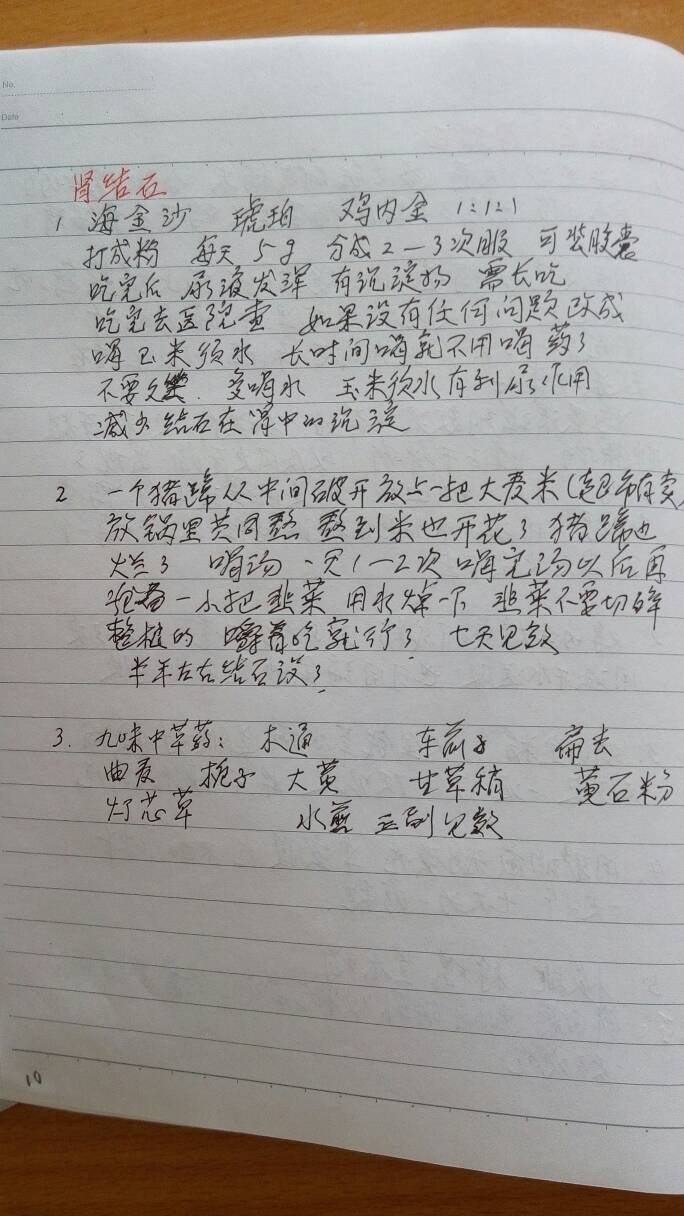 No.
Date
肾结石
1 海金沙 琥珀 鸡内金 1:1:1
打成粉 每天5g 分成2—3次服 可装胶囊
吃完后 尿液发浑 有沉淀物 需长吃
吃完去医院查 如果没有任何问题改成
喝玉米须水 长时间喝就不用喝药了
不要久坐. 多喝水 玉米须水有利尿作用
减少结石在肾中的沉淀
2 一个猪蹄从中间破开放上一把大麦米(超市有卖)
放锅里共同熬 熬到米也开花了 猪蹄也
烂了 喝汤 一天1—2次 喝完汤以后再
吃 一小把韭菜 用水焯一下 韭菜不要切碎
整植的 嚼着吃就行了 七天见效
半年左右结石没了
3. 九味中草药: 木通 车前子 扁去
曲麦 栀子 大黄 甘草稍 黄石粉
灯芯草 水煎 五副见效
10